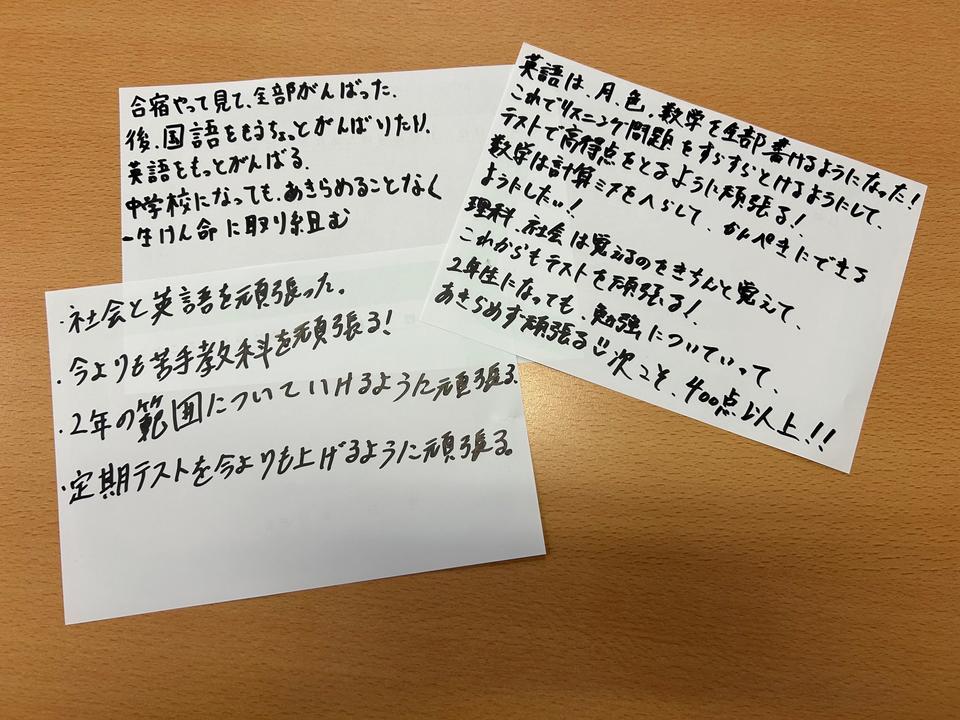 合宿やって見て、全部がんばった、
後、国語をもうちょっとがんばりたり、
英語をもっとがんばる、
中学校になっても、あきらめることなく
一生けん命に取り組む
英語は、月、色、数字を全部書けるようになった!
これでリスニング問題をすらすらとけるようにして、
テストで高得点をとるように頑張る!
数学は計算ミスをへらして、かんぺきにできる
ようにしたい!
理科、社会は覚えるのをきちんと覚えて、
これからもテストを頑張る!
2年生になっても、勉強についていって、
あきらめず頑張る 次こそ、400点以上!!
・社会と英語を頑張った。
・今よりも苦手教科を頑張る!
・2年の範囲についていけるように頑張る。
・定期テストを今よりも上げるように頑張る。